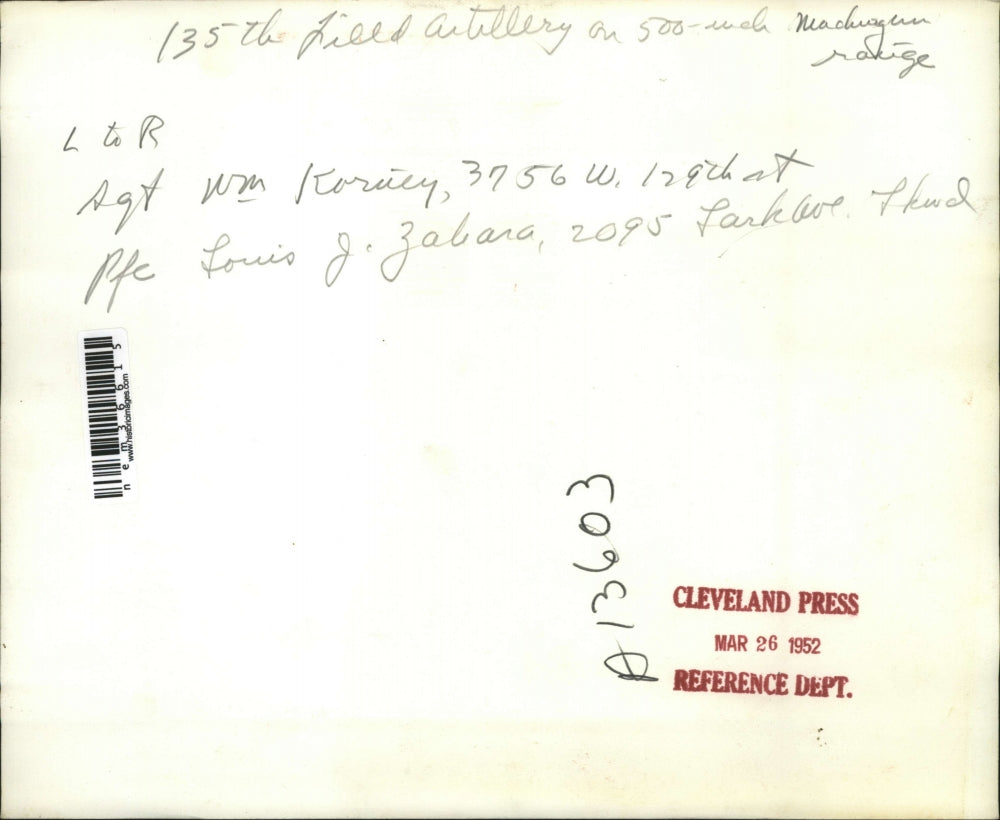 135th Field Artillery on 500-inch Machinegun
range
L to R
Sgt Wm Korney, 3756 W. 129th st
Pfc Louis J. Zabara, 2095 Lark Ave. Lkwd
nem36615
www.historicimages.com
A13603
CLEVELAND PRESS
MAR 26 1952
REFERENCE DEPT.